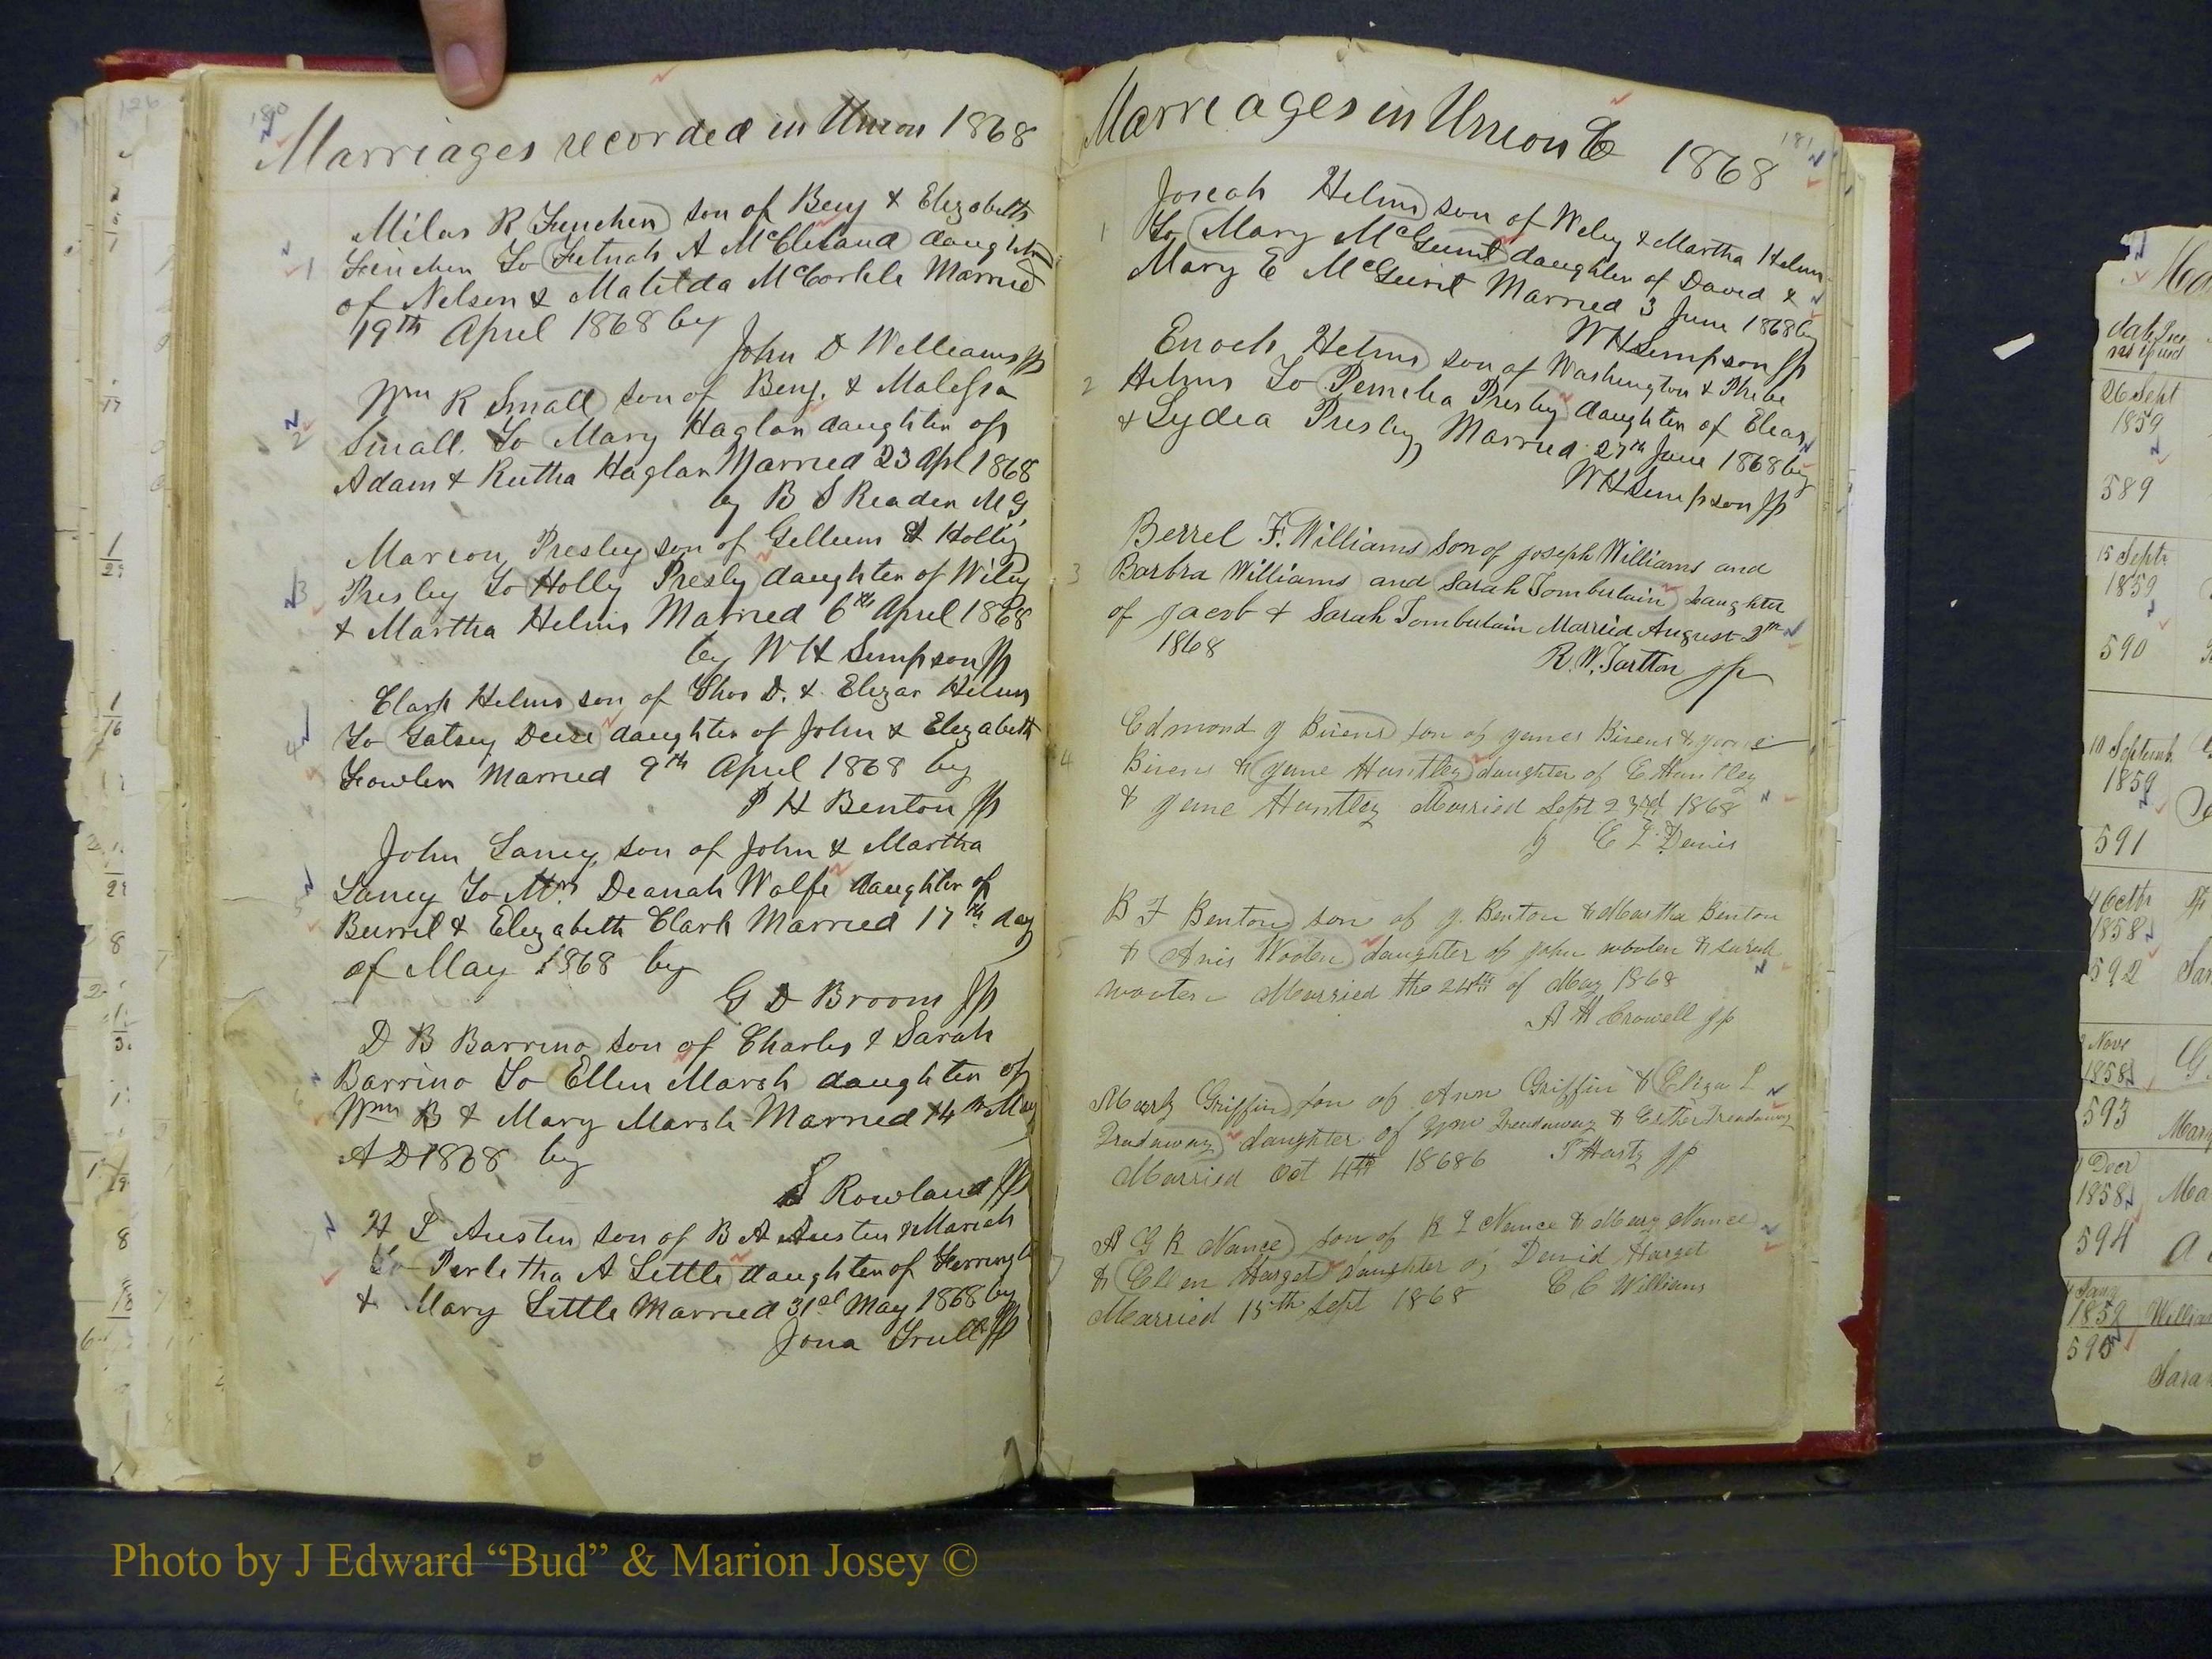 180
Marriages recorded in Union 1868
Milas R Funchen son of Benj & Elizabeth
1 Funchen To Fetnah A McCleland daughter
of Nelson & Matilda McCorkle Married
19th April 1868 by
John D Williams JP
Wm R Small son of Benj. & Malissa
2 Small. To Mary Haglar daughter of
Adam & Rutha Haglar Married 23 Apl 1868
by B S Reader M G
Marion Presley son of Gellum & Holly
3 Presley To Holly Presly daughter of Wiley
& Martha Helms Married 6th April 1868
by W H Simpson JP
Clark Helms son of Thos D. & Elizar Helms
4 To Gatsey Deese daughter of John & Elizabeth
Fowler Married 9th April 1868 by
P H Benton JP
John Laney son of John & Martha
Laney To Mrs Deanah Wolfe daughter of
Burrel & Elizabeth Clark Married 17th day
of May 1868 by
G D Broom JP
D B Barrino son of Charles & Sarah
Barrino To Ellen Marsh daughter of
Wm B & Mary Marsh Married 14th May
A D 1868 by
S Rowland JP
H L Austin son of B A Austin & Mariah
To Perlitha A Little daughter of
& Mary Little Married 31st May 1868 by
Jona Trull JP
Marriages in Union Co 1868
181
Joseah Helms son of Wiley & Martha Helms
1 To Mary McGuirt daughter of David &
Mary E McGuirt Married 3 June 1868 by
W H Simpson JP
Enoch Helms son of Washington & Phebe
2 Helms To Permelia Presley daughter of Elias
& Lydia Presley Married 27th June 1868 by
W H Simpson JP
Berrel F. Williams Son of Joseph Williams and
3 Barbra Williams and Sarah Tomberlain Daughter
of Jacob & Sarah Tomberlain Married August 2nd
1868
R. W. Tartton JP
Edmond J Bivens son of James Bivens &
4 Bivens to Jane Huntley daughter of E. Huntley
& Jane Huntley Married Sept 23rd 1868
by E L Davis
B F Benton son of J. Benton & Martha Benton
5 to Anis Wooten daughter of John wooten & Sarah
wooten Married the 24th of May 1868
A H Crowell JP
Mark Griffin son of Ann Griffin & Eliza L
Treadaway daughter of Wm Treadaway & Esther Treadaway
Married Oct 4th 1868 6
T Harty JP
A G R Nance son of R L Nance & Mary Nance
7 to Ellen Harget daughter of David Harget
Married 15th Sept 1868
C C Williams
26 Sept
1859
589
15 Septr
1859
590
10 Septemb
1859
591
4 Octr
1858
592
Nove
1858
593
Decr
1858
594
Jany
1859
595
Photo by J Edward “Bud” & Marion Josey ©